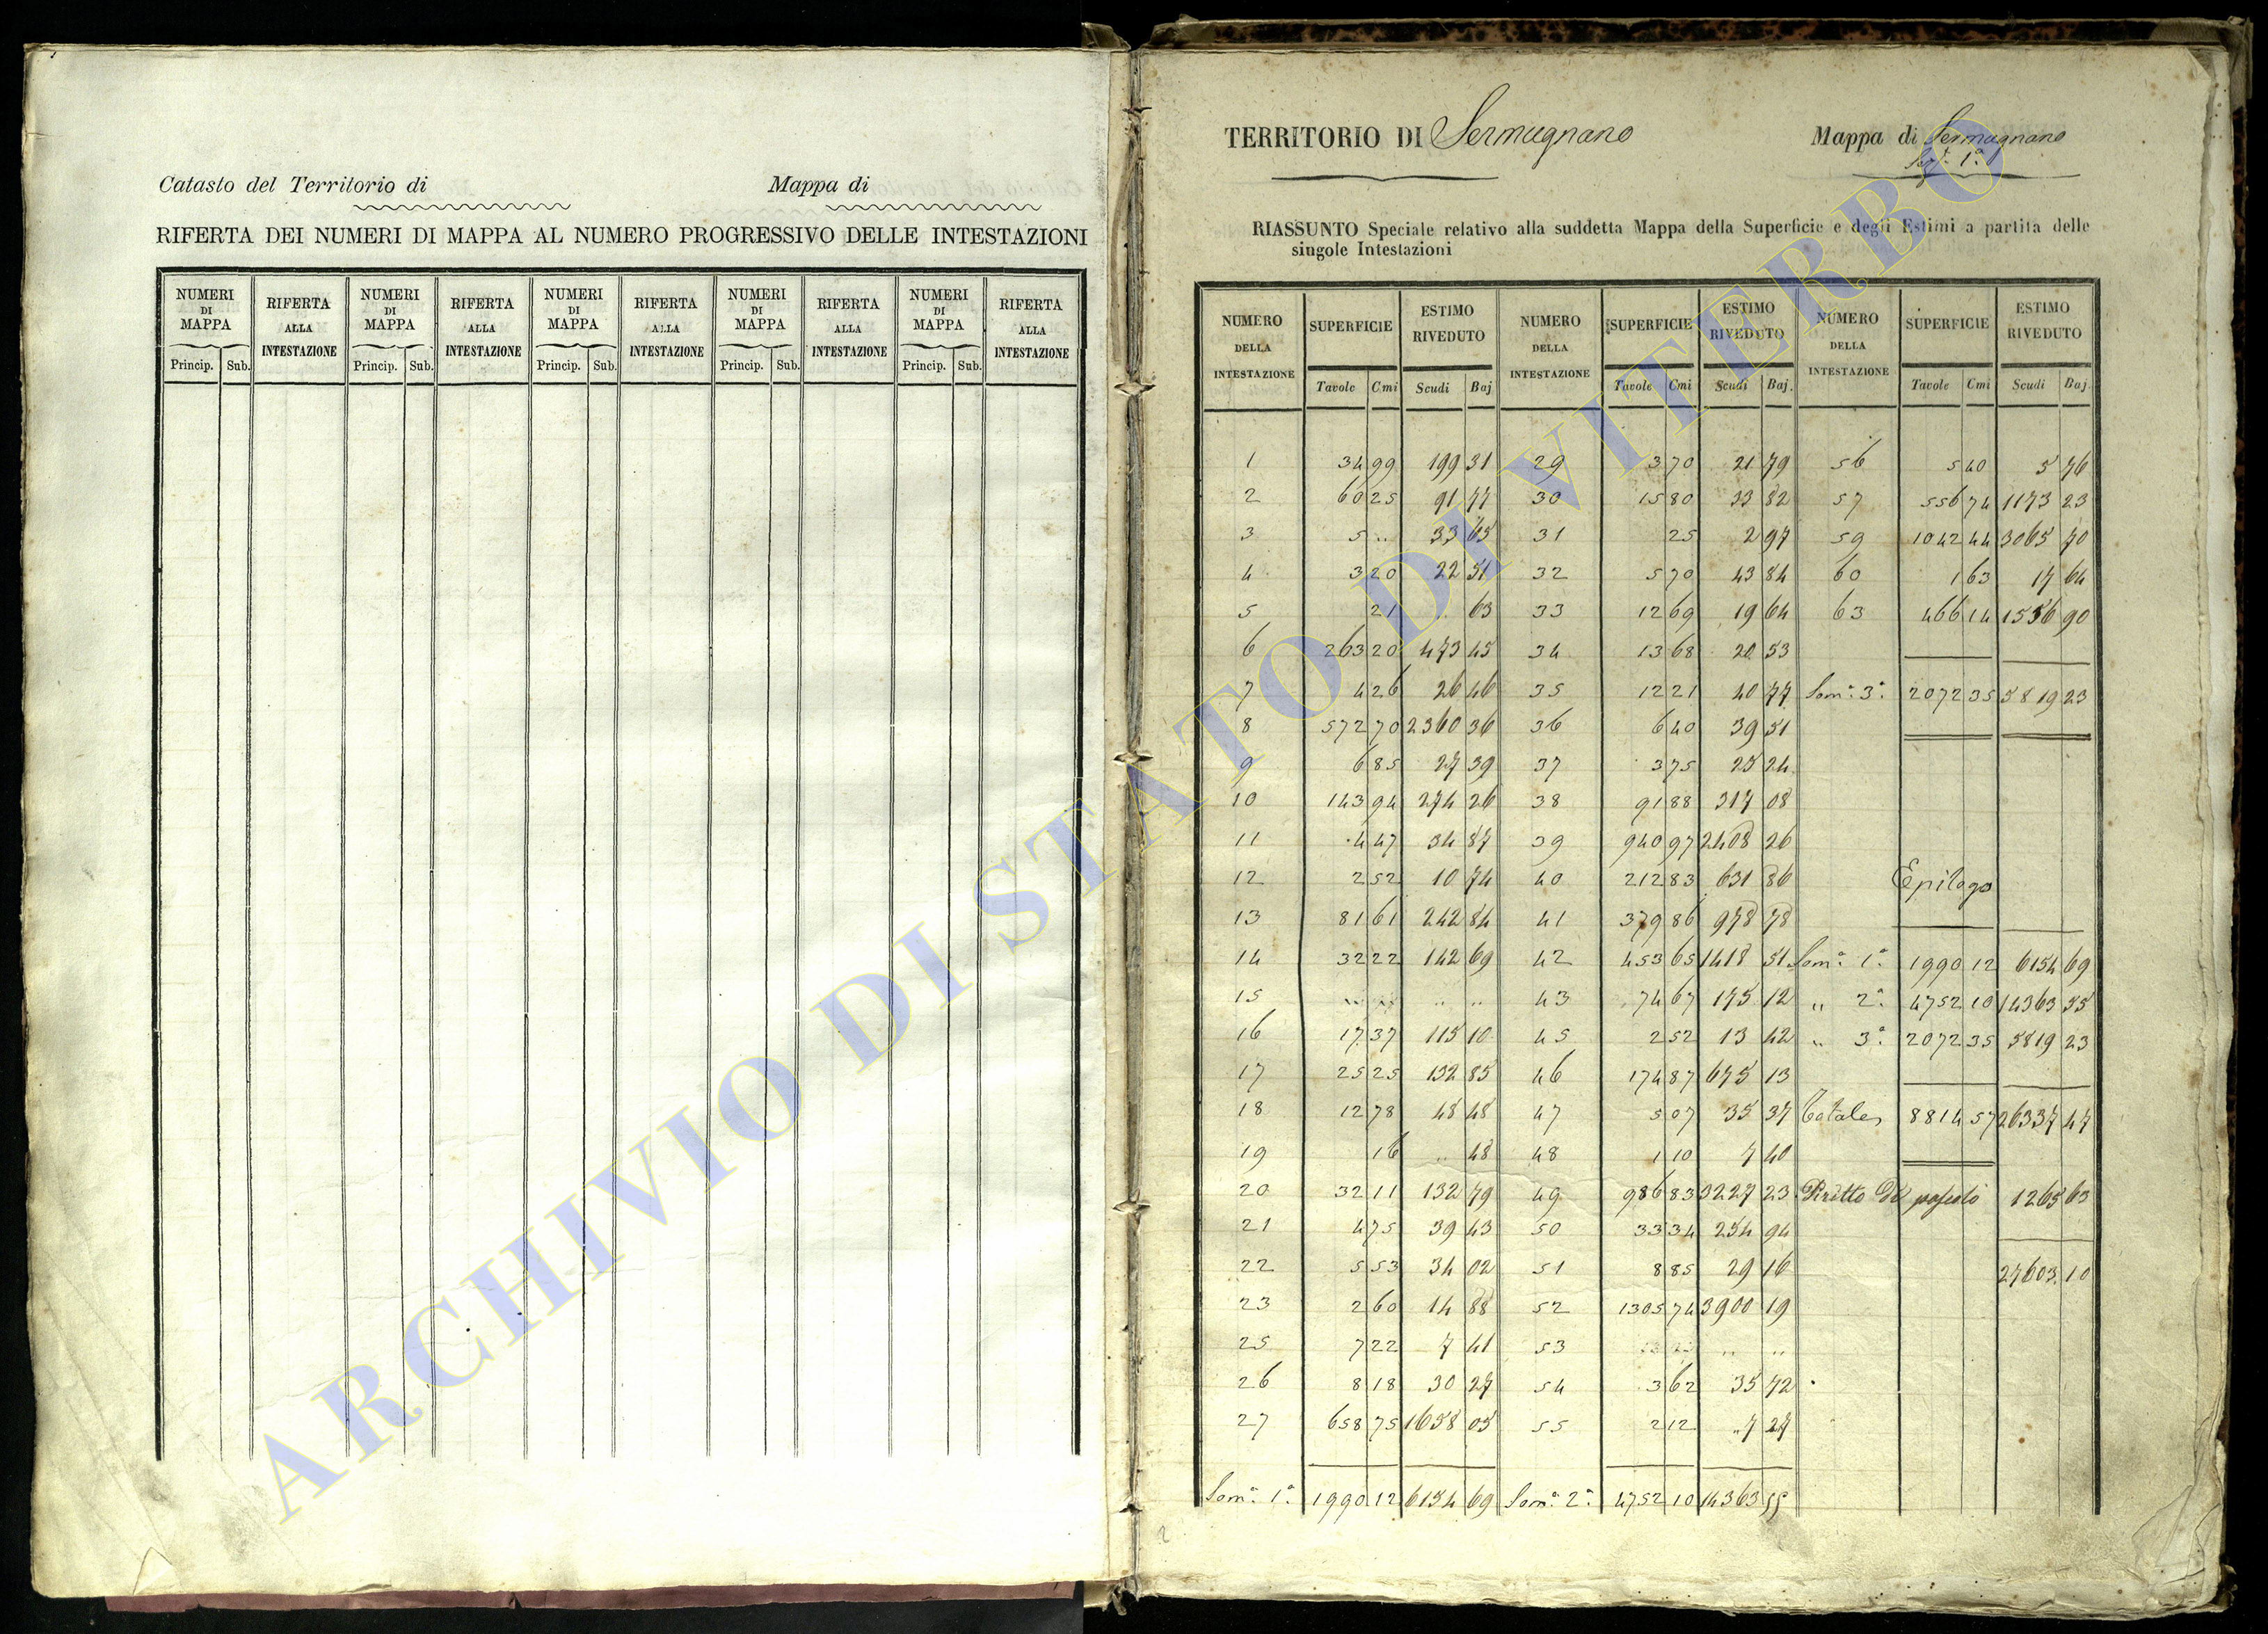 Catasto del Territorio di Mappa di
RIFERTA DEI NUMERI DI MAPPA AL NUMERO PROGRESSIVO DELLE INTESTAZIONI
NUMERI DI MAPPA RIFERTA ALLA INTESTAZIONE NUMERI DI MAPPA RIFERTA ALLA INTESTAZIONE NUMERI DI MAPPA RIFERTA ALLA INTESTAZIONE NUMERI DI MAPPA RIFERTA ALLA INTESTAZIONE NUMERI DI MAPPA RIFERTA ALLA INTESTAZIONE
Princip. Sub. Princip. Sub. Princip. Sub. Princip. Sub. Princip. Sub.
TERRITORIO DI Sermugnano Mappa di Sermugnano
Sez. 1ª
RIASSUNTO Speciale relativo alla suddetta Mappa della Superficie e degli Estimi a partita delle
singole Intestazioni
NUMERO DELLA INTESTAZIONE SUPERFICIE ESTIMO RIVEDUTO NUMERO DELLA INTESTAZIONE SUPERFICIE ESTIMO RIVEDUTO NUMERO DELLA INTESTAZIONE SUPERFICIE ESTIMO RIVEDUTO
Tavole Cmi Scudi Baj Tavole Cmi Scudi Baj. Tavole Cmi Scudi Baj
1 34 99 199 31 29 3 70 21 79 56 5 40 5 76
2 60 25 91 77 30 15 80 33 82 57 556 74 1173 23
3 5 .. 33 65 31 25 2 97 59 1042 44 3065 70
4 3 20 22 51 32 5 70 43 84 60 1 63 17 64
5 21 .. 63 33 12 69 19 64 63 466 14 1556 90
6 263 20 473 45 34 13 68 20 53
7 4 26 26 46 35 12 21 40 77 Som.ª 3ª 2072 35 5819 23
8 572 70 2360 36 36 6 40 39 51
9 6 85 27 39 37 3 75 25 24
10 143 94 274 26 38 91 88 317 08
11 4 47 34 87 39 940 97 2408 26
12 2 52 10 74 40 212 83 631 86 Epilogo
13 81 61 242 84 41 379 86 978 78
14 32 22 142 69 42 453 65 1418 51 Som.ª 1ª 1990 12 6154 69
15 .. .. .. .. 43 74 67 175 12 " 2ª 4752 10 14363 55
16 17 37 115 10 45 2 52 13 42 " 3ª 2072 35 5819 23
17 25 25 132 85 46 174 87 675 13
18 12 78 48 48 47 5 07 35 37 Totale 8814 57 26337 47
19 16 .. 48 48 1 10 7 40
20 32 11 132 79 49 986 83 3227 23 Diritto di pascolo 1265 63
21 4 75 39 43 50 33 34 254 94
22 5 53 34 02 51 8 85 29 16 27603 10
23 2 60 14 88 52 1305 74 3900 19
25 7 22 7 41 53 .. ..
26 8 18 30 27 54 3 62 35 72
27 658 75 1658 05 55 2 12 7 27
Som.ª 1ª 1990 12 6154 69 Som.ª 2ª 4752 10 14363 55
2
ARCHIVIO DI STATO DI VITERBO